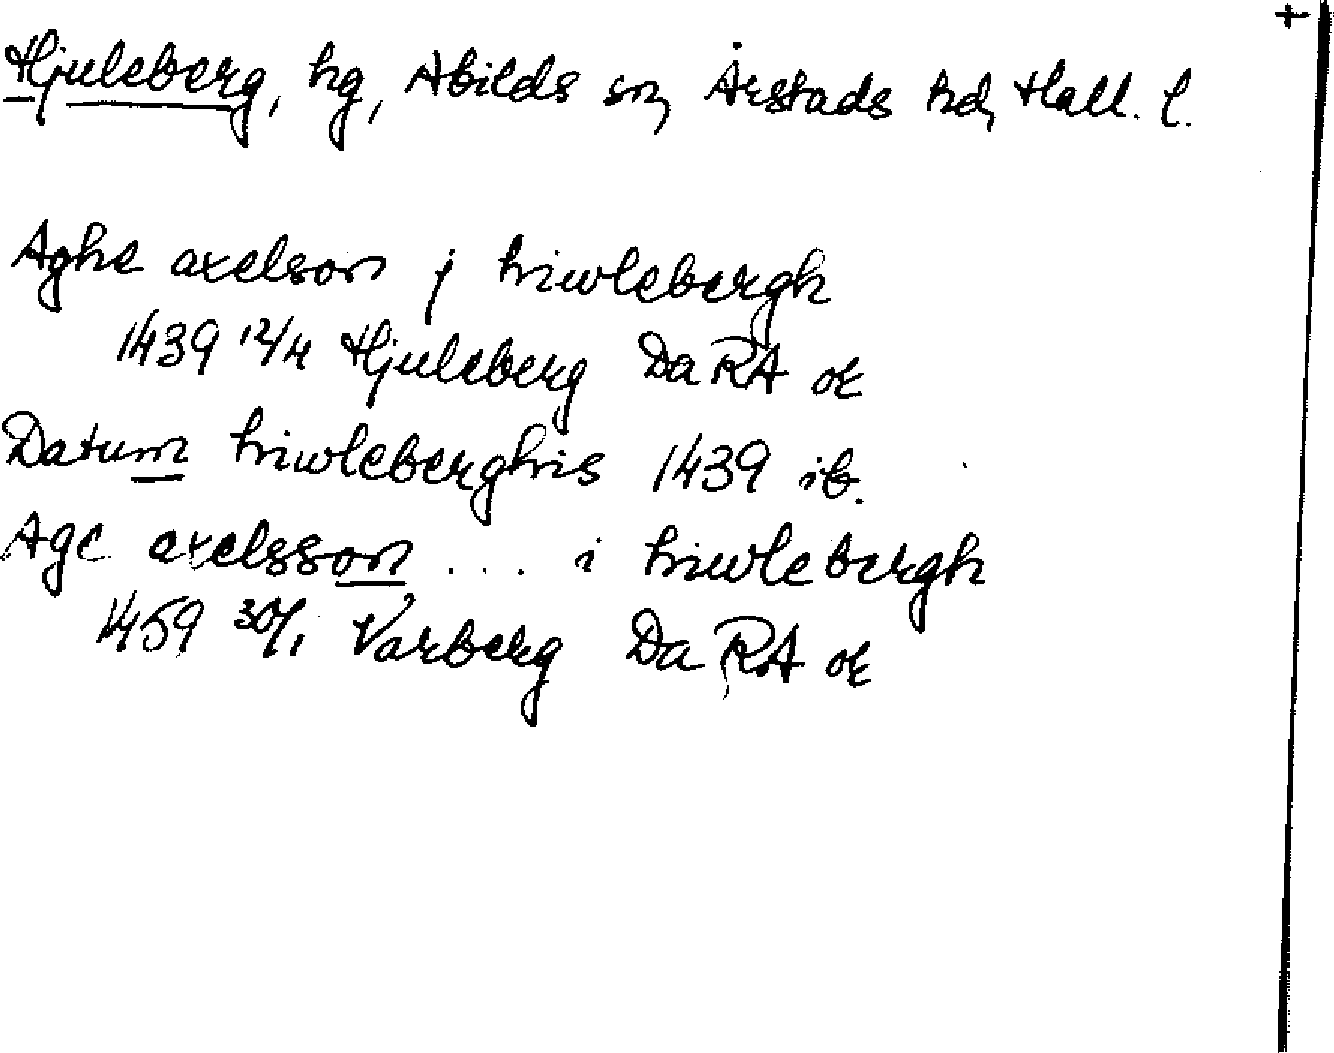 +
Hjuleberg, hg, Abilds sn, Årstads hd, Hall. l.
Aghe axelson j hiwlebergh
1439 12/4 Hjuleberg DaRA or
Datum hiwleberghis 1439 ib.
Age axelsson ... i hiwlebergh
1459 30/1 Varberg DaRA or